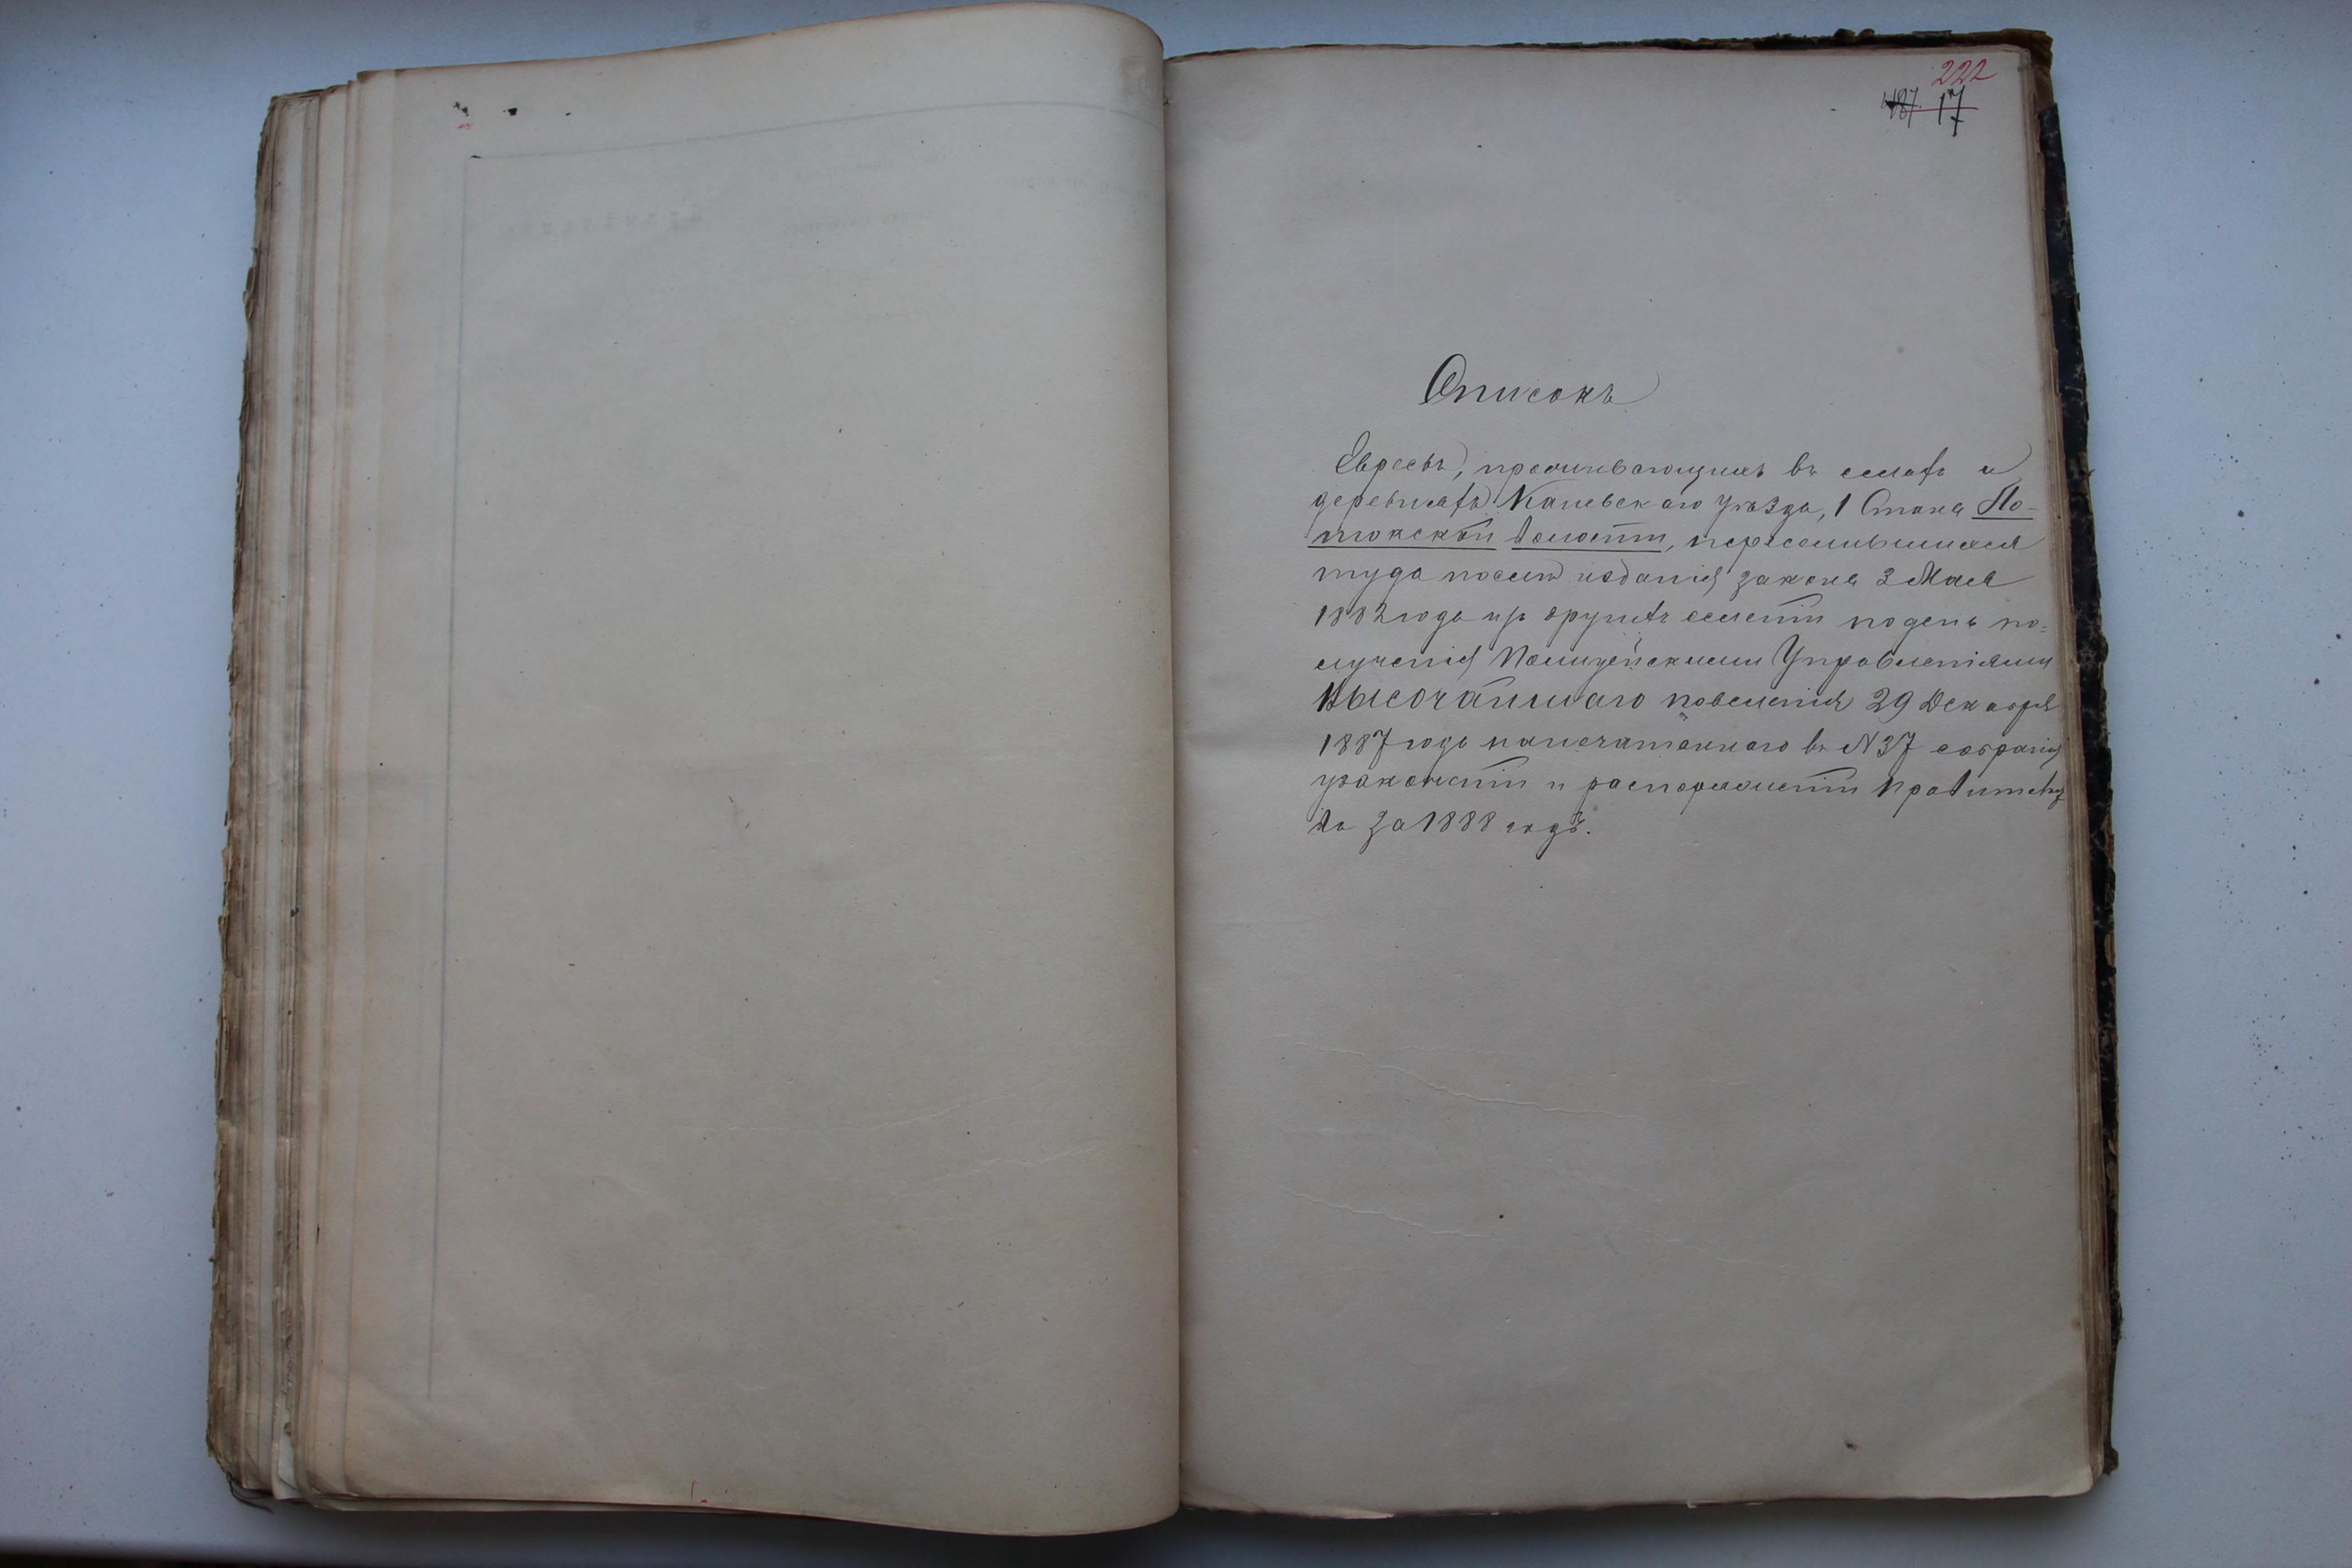 222
187. 17
Списокъ
Евреевъ, проживающихъ въ селахъ и
деревняхъ Каневскаго уѣзда, 1 Стана По-
токской волости, переселившихся
туда послѣ изданія закона 3 Мая
1882 года изъ другихъ селеній по день по=
лученія Полицейскими Управленіями
Высочайшаго повеленія 29 Декабря
1887 года напечатаннаго въ №37 собранія
узаконеній и распоряженій Правительс
ва за 1888 годъ.